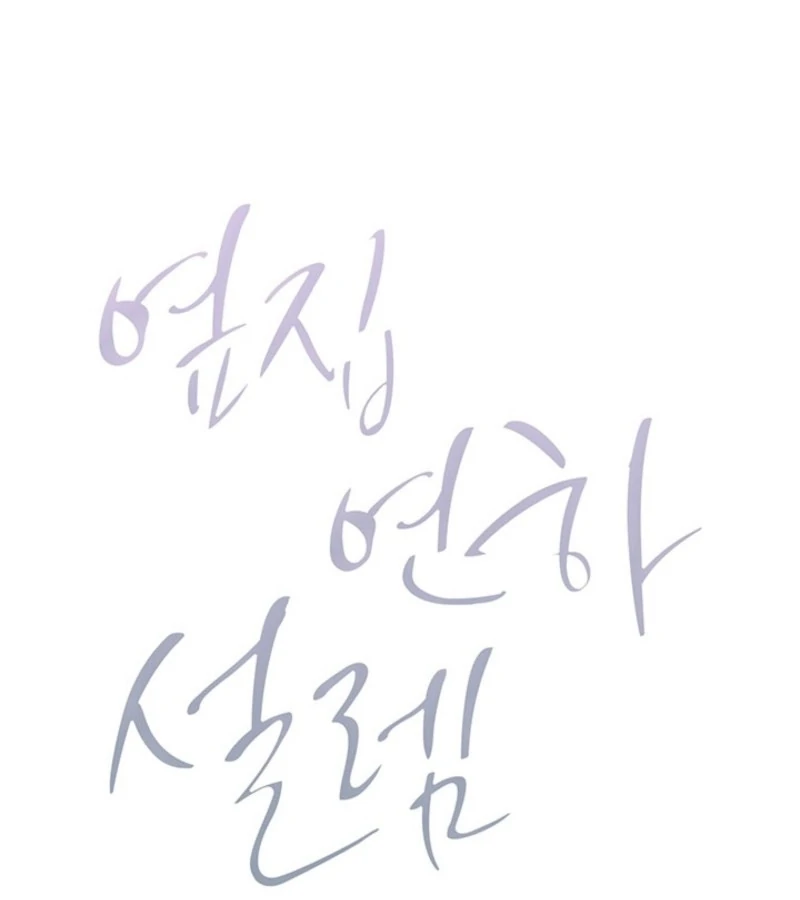 옆집
연하
설렘